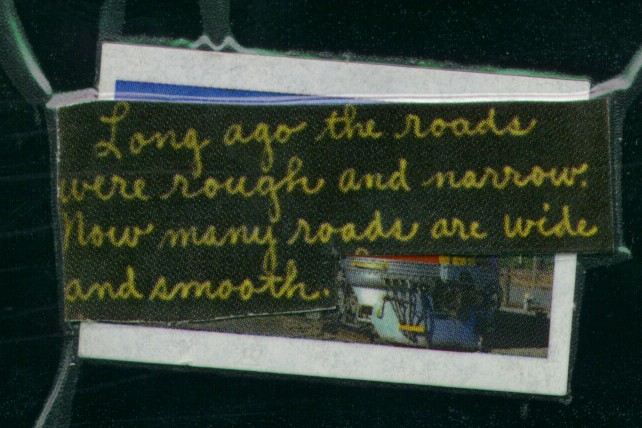 Long ago the roads
were rough and narrow.
Now many roads are wide
and smooth.